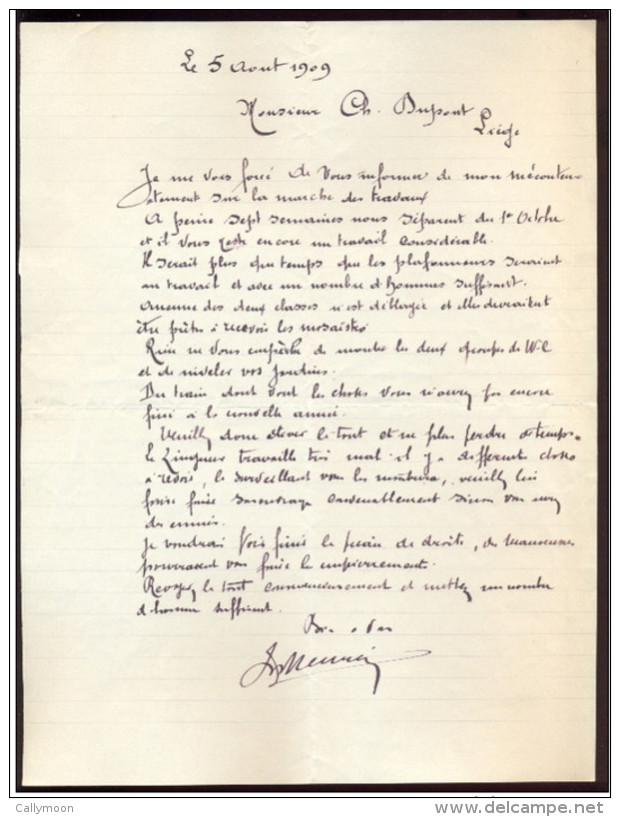 Le 5 Aout 1909
Monsieur Ch. Dupont
Liège
Je me vois forcé de vous informer de mon méconten-
tement sur la marche des travaux
A peine sept semaines nous séparent du 1er Octobre
et il vous reste encore un travail considérable.
Il serait plus que temps que les plafonneurs seraient
au travail et avec un nombre d'hommes suffisant.
Aucune des deux classes n'est et elles devraient
être prêtes à recevoir les mosaïstes
Rien ne vous empêche de monter les deux groupes de W-C
et de niveler vos jardins.
Du train dont vont les choses vous n'aurez pas encore
fini à la nouvelle année.
Veuillez donc le tout et ne plus perdre de temps.
le Zingueur travaille très mal il y a différentes choses
à revoir, le surveillant vous les montrera, veuillez lui
faire faire convenablement sinon vous aurez
des ennuis.
Je voudrais voir finir le de droite, des manoeuvres
pourraient vous faire le empierrement.
le tout et mettez un nombre
d'homme suffisant.